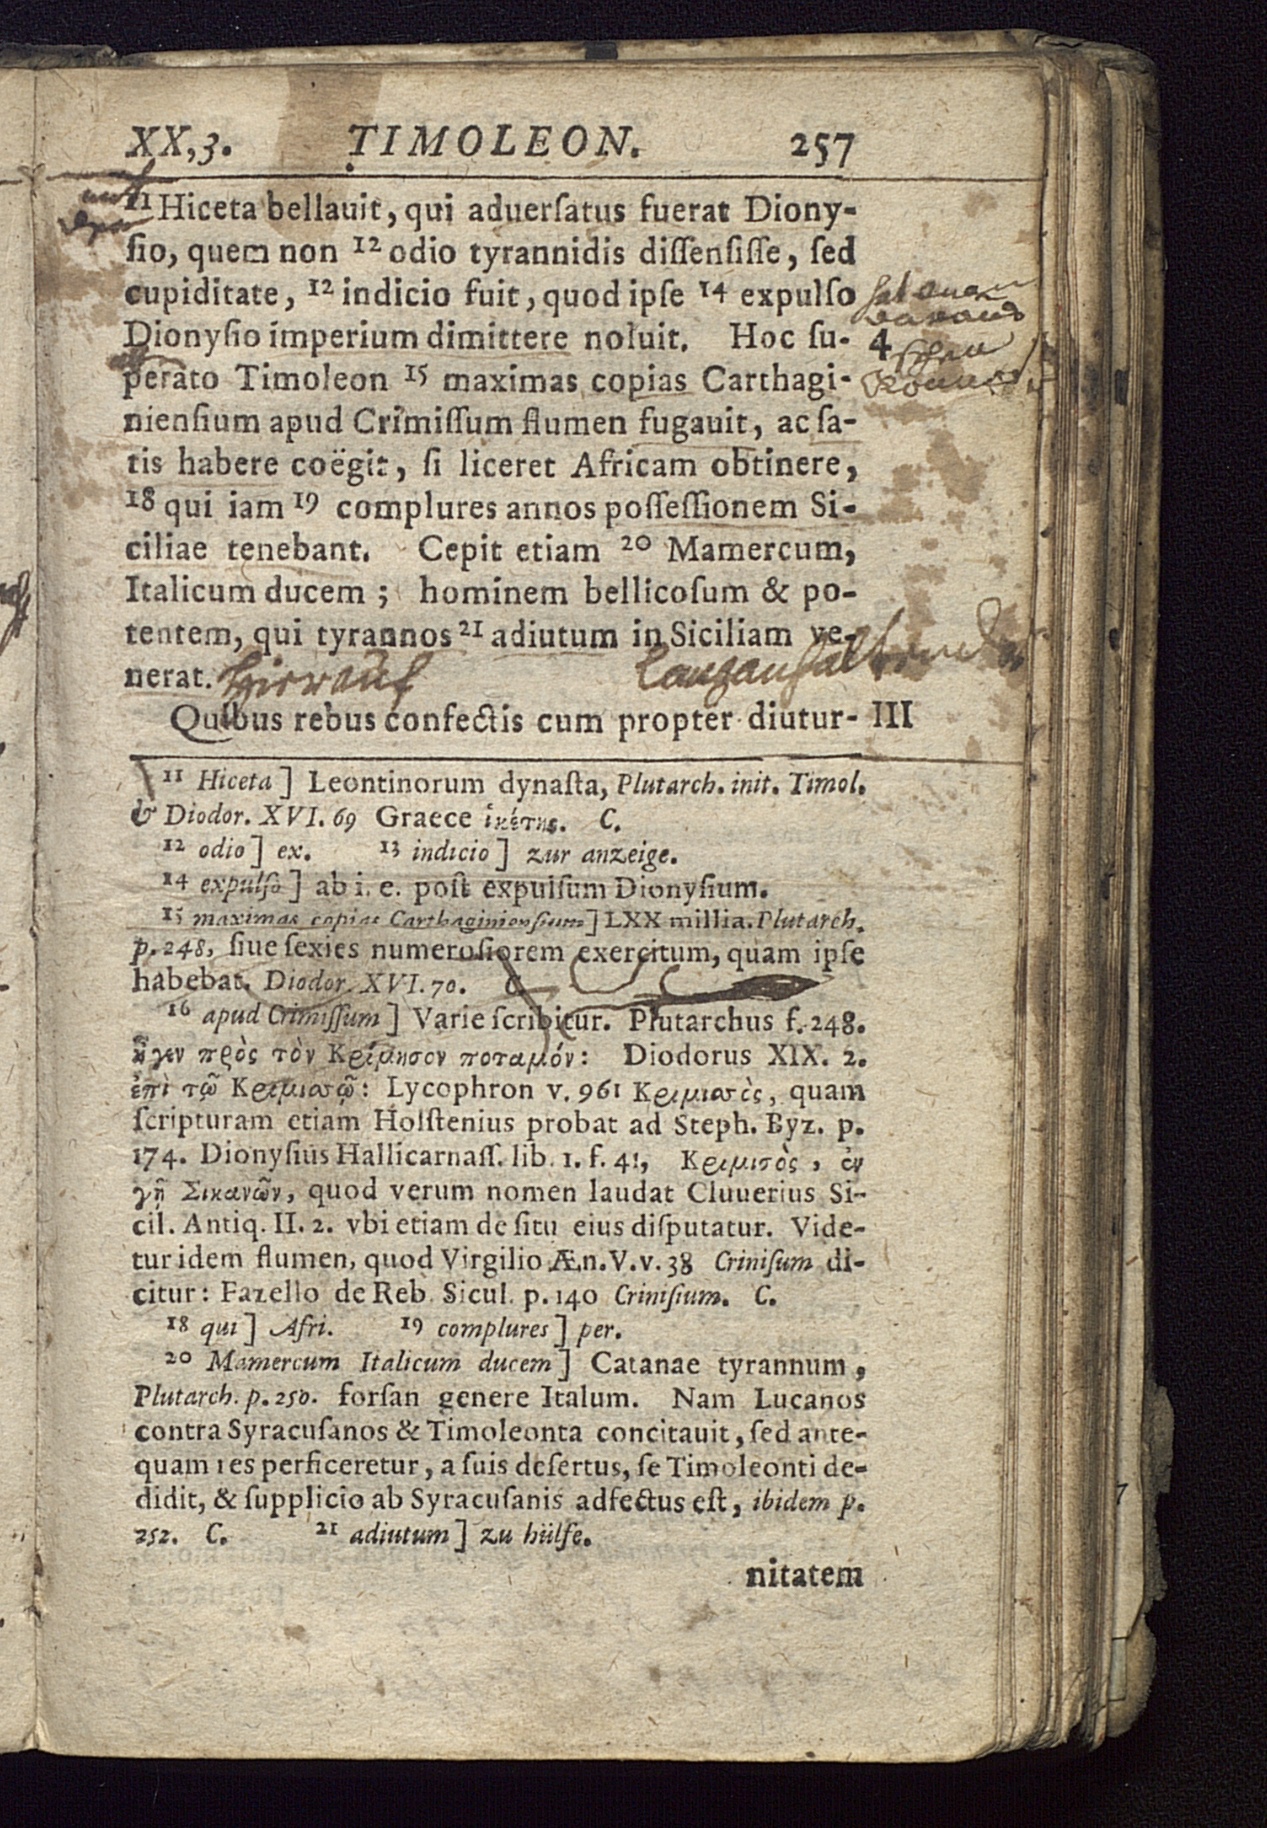 XX,3. TIMOLEON. 257
11 Hiceta bellauit, qui aduerſatus fuerat Diony-
ſio, quem non 12 odio tyrannidis diſſenſiſſe, ſed
cupiditate, 12 indicio fuit, quod ipſe 14 expulſo
Dionyſio imperium dimittere noluit. Hoc ſu- 4
perato Timoleon 15 maximas copias Carthagi-
nienſium apud Crimiſſum flumen fugauit, ac ſa-
tis habere coëgit, ſi liceret Africam obtinere,
18 qui iam 19 complures annos poſſeſſionem Si-
ciliae tenebant. Cepit etiam 20 Mamercum,
Italicum ducem; hominem bellicoſum & po-
tentem, qui tyrannos 21 adiutum in Siciliam ve-
nerat. hierauf
Quibus rebus confectis cum propter diutur- III
11 Hiceta] Leontinorum dynaſta, Plutarch. init. Timol.
& Diodor. XVI. 69 Graece ἱκέτης. C.
12 odio] ex. 13 indicio] zur anzeige.
14 expulſo] ab i. e. poſt expulſum Dionyſium.
15 maximas copias Carthaginienſium] LXX millia. Plutarch.
p. 248, ſiue ſexies numeroſiorem exercitum, quam ipſe
habebat. Diodor. XVI. 70. C.
16 apud Crimiſſum] Varie ſcribitur. Plutarchus f. 248.
ἦγεν πρὸς τὸν Κρίμησον ποταμόν: Diodorus XIX. 2.
ἐπὶ τῷ Κριμισῷ: Lycophron v. 961 Κριμισὸς, quam
ſcripturam etiam Holſtenius probat ad Steph. Byz. p.
174. Dionyſius Hallicarnaſſ. lib. 1. f. 41, Κριμισὸς, ἐν
γῇ Σικανῶν, quod verum nomen laudat Cluuerius Si-
cil. Antiq. II. 2. vbi etiam de ſitu eius diſputatur. Vide-
tur idem flumen, quod Virgilio Æn. V. v. 38 Criniſum di-
citur: Fazello de Reb. Sicul. p. 140 Criniſium. C.
18 qui] Afri. 19 complures] per.
20 Mamercum Italicum ducem] Catanae tyrannum,
Plutarch. p. 250. forſan genere Italum. Nam Lucanos
contra Syracuſanos & Timoleonta concitauit, ſed ante-
quam res perficeretur, a ſuis deſertus, ſe Timoleonti de-
didit, & ſupplicio ab Syracuſanis adfectus eſt, ibidem p.
252. C. 21 adiutum] zu hülfe.
nitatem